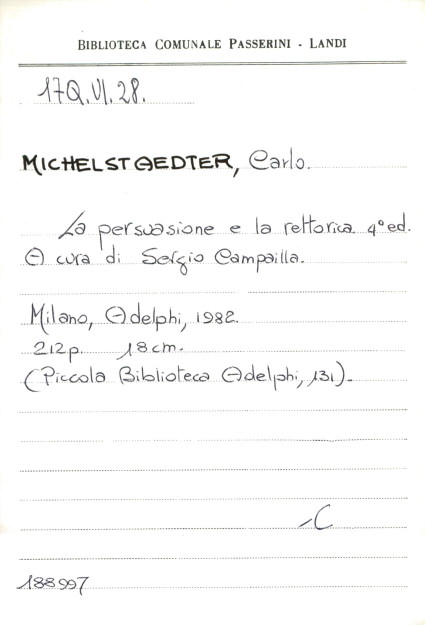 BIBLIOTECA COMUNALE PASSERINI - LANDI
17Q.VI.28.
MICHELSTAEDTER, Carlo.
La persuasione e la rettorica. 4° ed.
A cura di Sergio Campailla.
Milano, Adelphi, 1982.
212p. 18cm.
(Piccola Biblioteca Adelphi, 131).
-C
188997